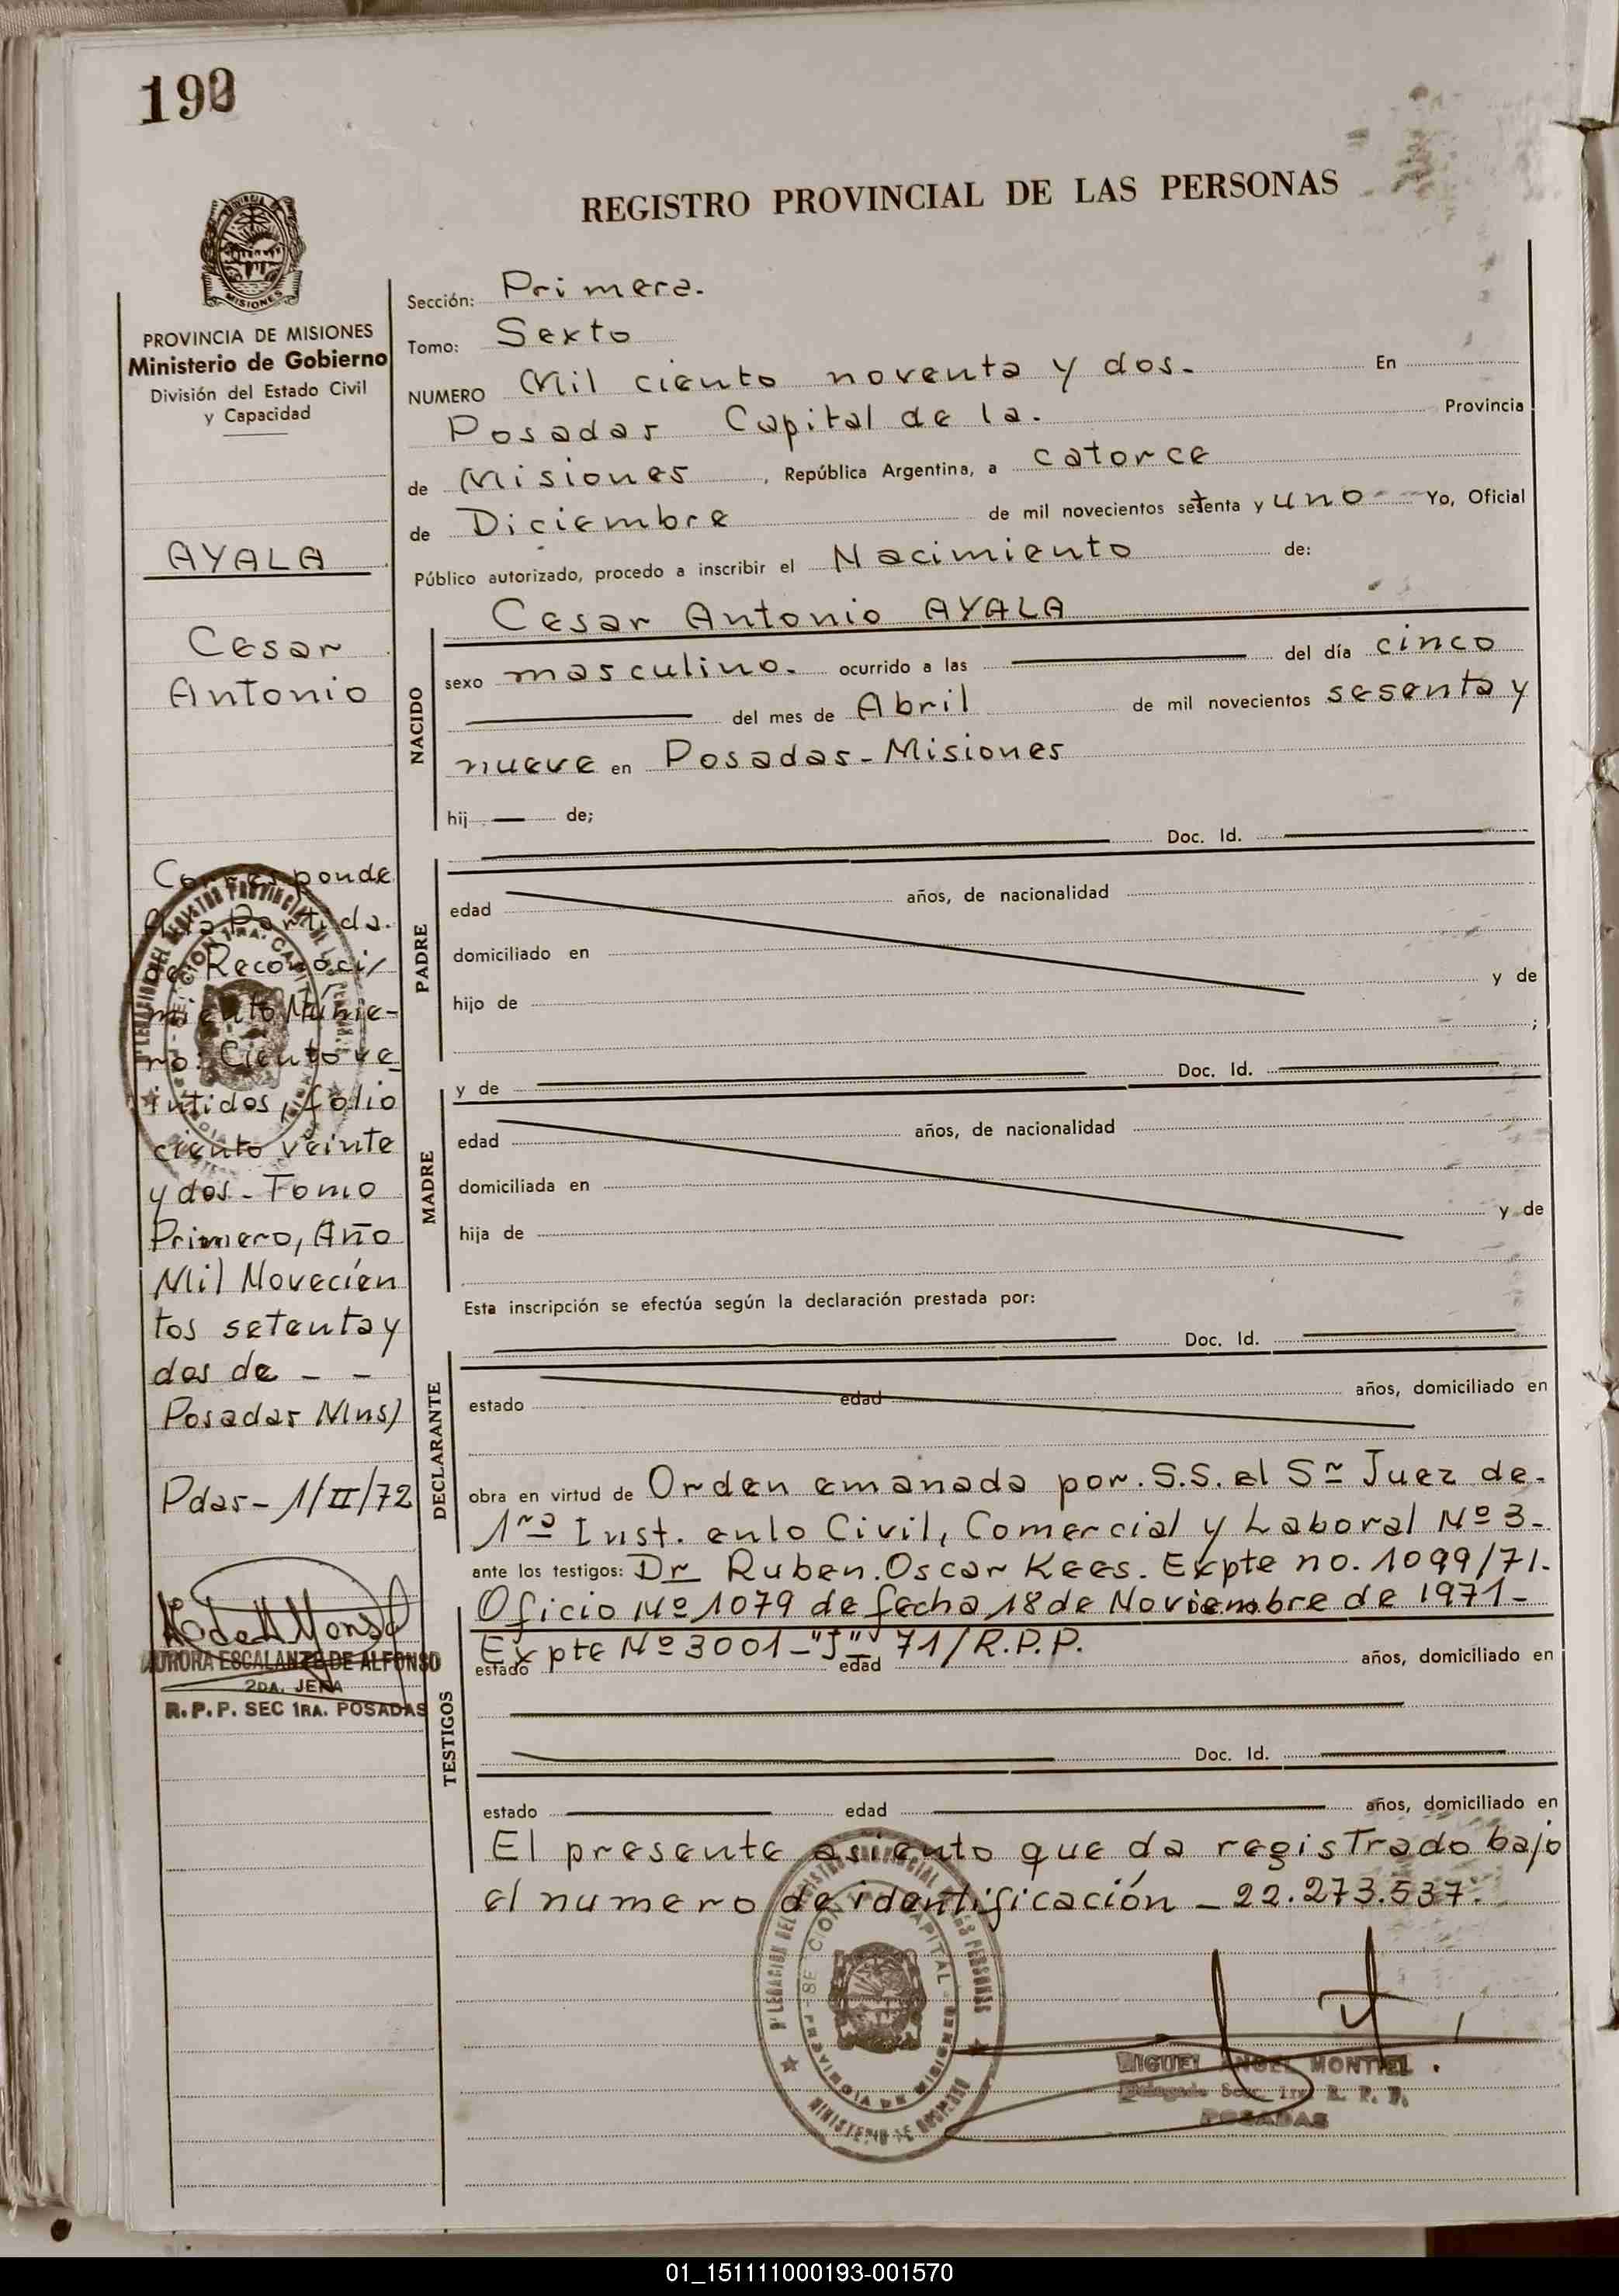 REGISTRO PROVINCIAL DE LAS PERSONAS
MISIONES
PROVINCIA DE MISIONES
Ministerio de Gobierno
División del Estado Civil
y Capacidad
AYALA
Cesar
Antonio
Corresponde
Partida.
de Reconoci/
miento Núme-
ro: Ciento ve
intidos, folio
ciento veinte
y dos - Tomo
Primero, Año
Mil Novecien
tos setenta y
dos de - -
Posadas Mns)
Pdas - 1/II/72
AURORA ESCALANTE DE ALFONSO
2DA. JEFA
R.P.P. SEC 1RA. POSADAS
Sección: Primera.
Tomo: Sexto
NUMERO Mil ciento noventa y dos. En
Posadas Capital de la. Provincia
de Misiones, República Argentina, a catorce
de Diciembre de mil novecientos setenta y uno Yo, Oficial
Público autorizado, procedo a inscribir el Nacimiento de:
Cesar Antonio AYALA
NACIDO
sexo masculino. ocurrido a las del día cinco
del mes de Abril de mil novecientos sesenta y
nueve en Posadas - Misiones
hij de;
Doc. Id.
PADRE
edad años, de nacionalidad
domiciliado en
hijo de y de
;
y de Doc. Id.
MADRE
edad años, de nacionalidad
domiciliada en
hija de y de
Esta inscripción se efectúa según la declaración prestada por:
Doc. Id.
DECLARANTE
estado edad años, domiciliado en
obra en virtud de Orden emanada por. S.S. el Sr Juez de.
1ra Inst. enlo Civil, Comercial y Laboral Nº 3-
ante los testigos: Dr Ruben. Oscar Kees. Expte no. 1099/71.
Oficio Nº 1079 de fecha 18 de Noviembre de 1971-
TESTIGOS
Expte Nº 3001-"J" 71/R.P.P.
estado edad años, domiciliado en
Doc. Id.
estado edad años, domiciliado en
El presente asiento que da registrado bajo
el numero de identificación - 22.273.537.
MIGUEL ANGEL MONTIEL.
Delegado Secc. 1ra. R. P. P.
POSADAS
01_151111000193-001570